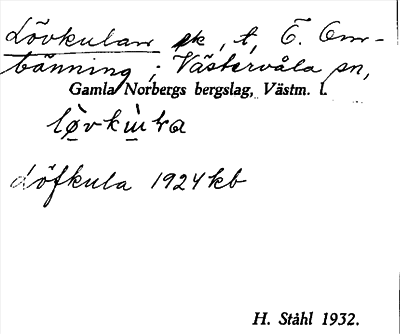 Lövkulan sk, t, Ö. Om-
bänning, Västervåla sn,
Gamla Norbergs bergslag, Västm. l.
Löfkula 1924 kb
H. Ståhl 1932.